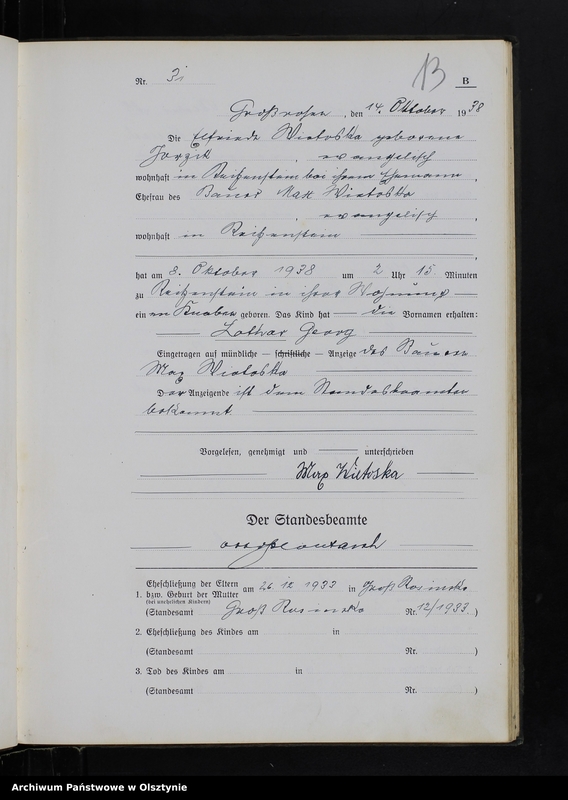 Nr. 31
B
B
Großrosen, den 14. Oktober 1938
Die Elfriede Wietoska geborene
, evangelisch
wohnhaft in Reitzenstein bei ihrem Ehemann,
Ehefrau des Bauer Max Wietoska
, evangelisch,
wohnhaft in Reitzenstein
hat am 8. Oktober 1938 um 2 Uhr 15 Minuten
zu Reitzenstein in ihrer Wohnung
ein en Knaben geboren. Das Kind hat — die Vornamen erhalten:
Lothar Georg
Eingetragen auf mündliche — schriftliche — Anzeige des Bauern
Max Wietoska
Der Anzeigende ist dem Standesbeamten
bekannt.
Vorgelesen, genehmigt und — unterschrieben
Max Wietoska
Der Standesbeamte
1. Eheschließung der Eltern bzw. Geburt der Mutter (bei unehelichen Kindern) am 26.12.1933 in Groß Rosinsko
(Standesamt Groß Rosinsko Nr. 12/1933.)
2. Eheschließung des Kindes am in
(Standesamt Nr. )
3. Tod des Kindes am in
(Standesamt Nr. )
Archiwum Państwowe w Olsztynie